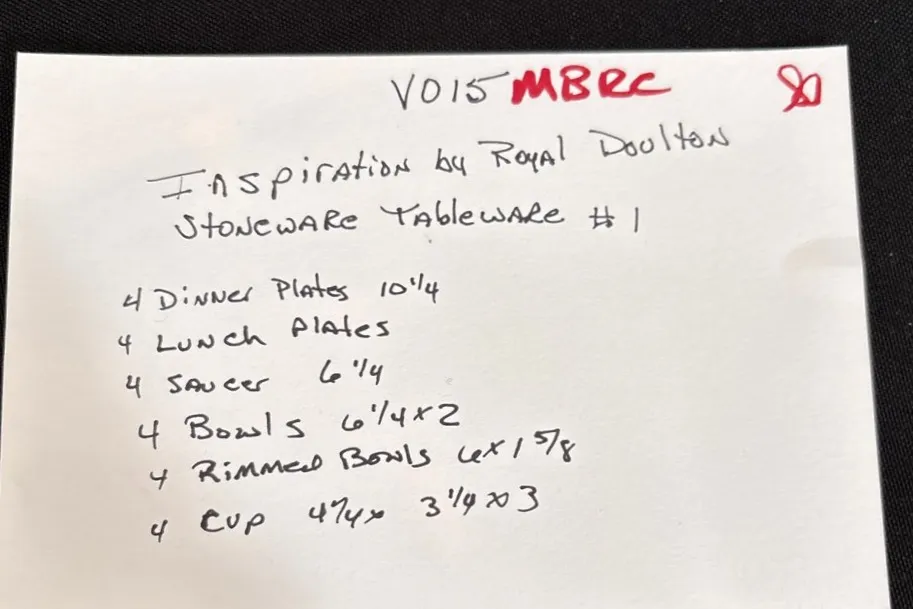 VO15 MBRC
Inspiration by Royal Doulton
Stoneware Tableware #1
4 Dinner Plates 10 1/4
4 Lunch Plates
4 Saucer 6 1/4
4 Bowls 6 1/4 x 2
4 Rimmed Bowls 6 x 1 5/8
4 Cup 3 1/4 x 3